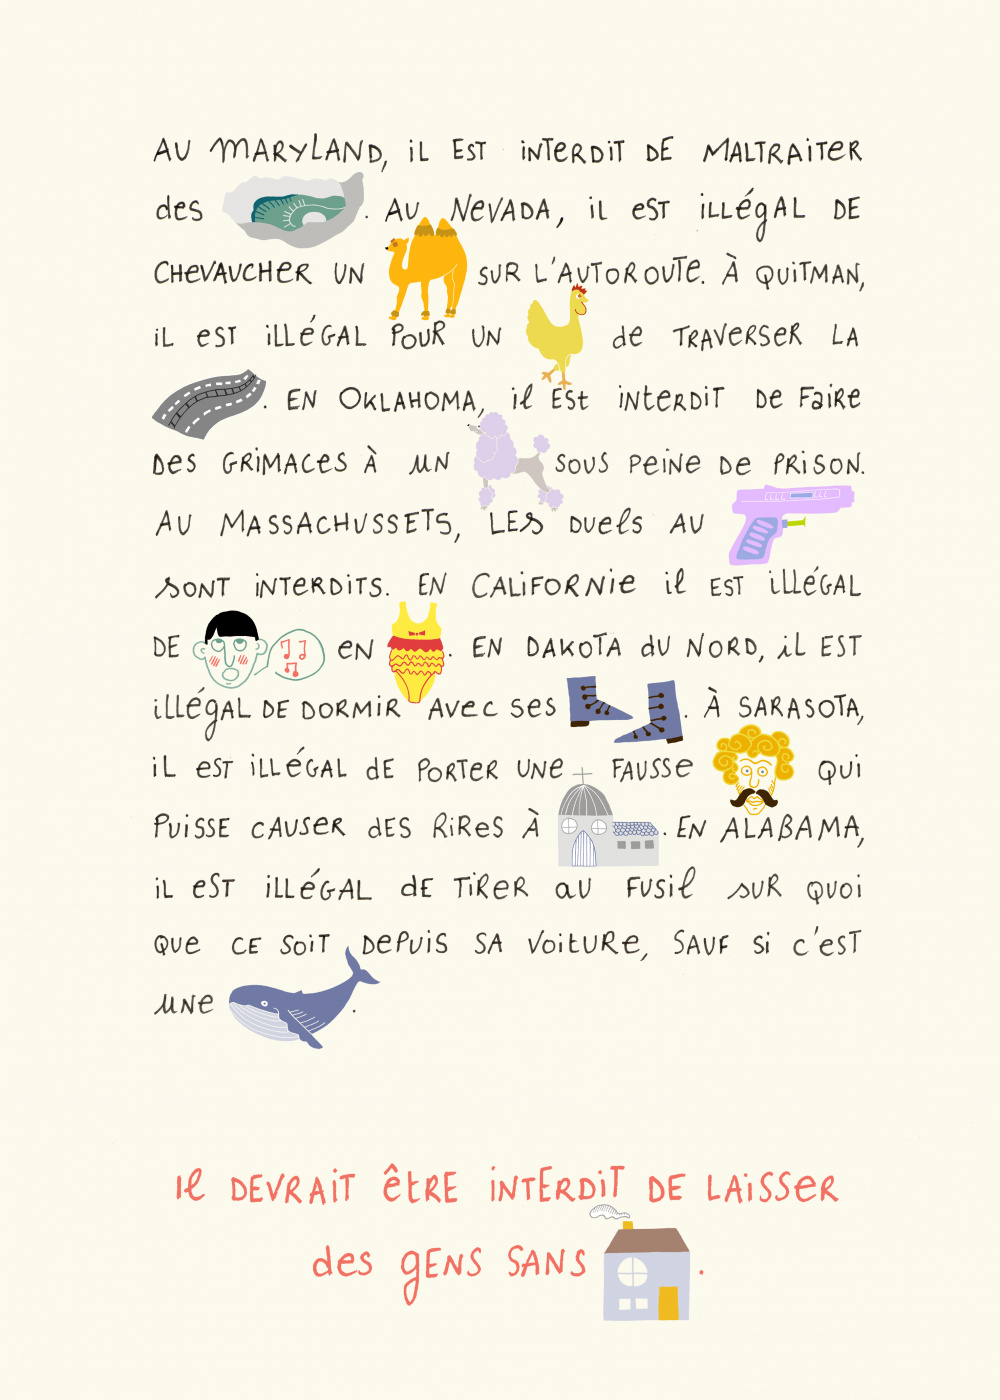 AU MARYLAND, iL EST iNTERDiT DE MALTRAiTER
des . AU NEVADA, iL eST iLLéGAL DE
CHEVAUCHER UN SUR L'AUTOROUTE. À QUiTMAN,
iL eST iLLéGAL POUR UN de TRAVERSER LA
. EN OKLAHOMA, il ESt iNtERDiT De FaiRe
DES GRiMACES À UN SOUS PEiNE DE PRiSON.
AU MASSACHUSSETS, LES DUELS AU
SONT iNTERDiTS. EN CALiFORNiE il EST iLLÉGAL
DE en . EN DAKOTA dU NORD, iL EST
iLLégAL DE DORMiR AVEC SES . À SARASOTA,
iL eST iLLéGAL dE PORTER UNE FAUSSE QUi
PUiSSE CAUSER dES RiReS À . EN ALABAMA,
iL eST iLLéGAL dE TiRER aU FUSil SUR QUOi
QUe CE SOiT DEPUiS SA VOiTURe, SAUF Si C'eST
UNe .
Il DEVRAiT êtRE iNTERDiT DE LAiSSER
des gENS SANS .